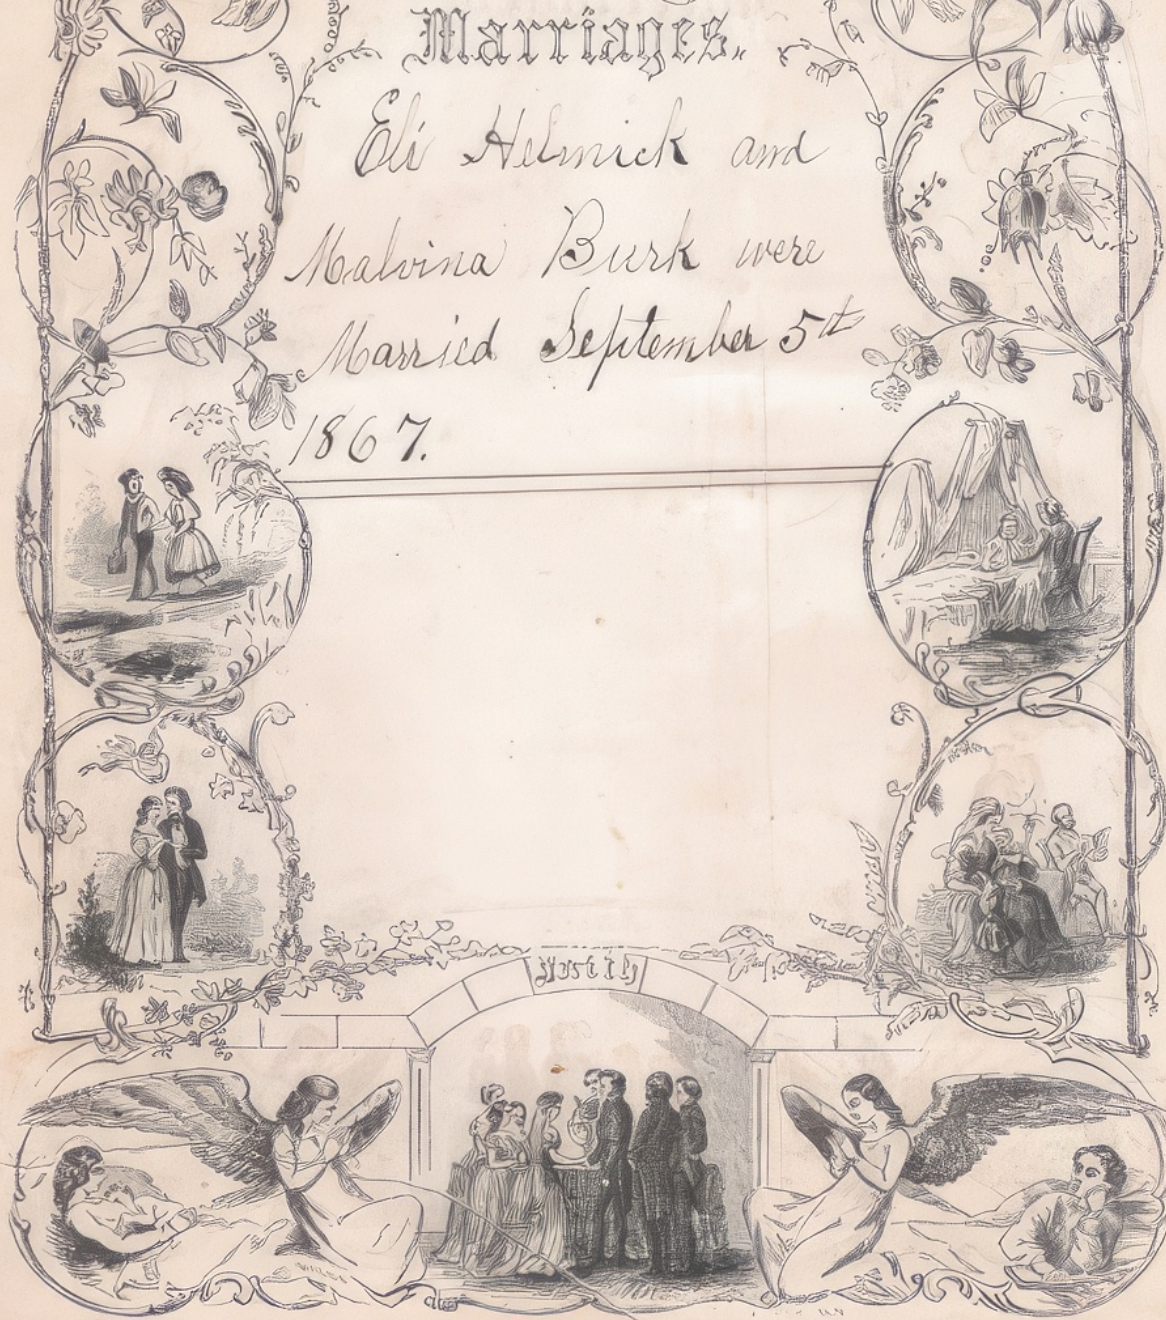 Marriages.
Eli Helmick and
Malvina Burk were
Married September 5th
1867.